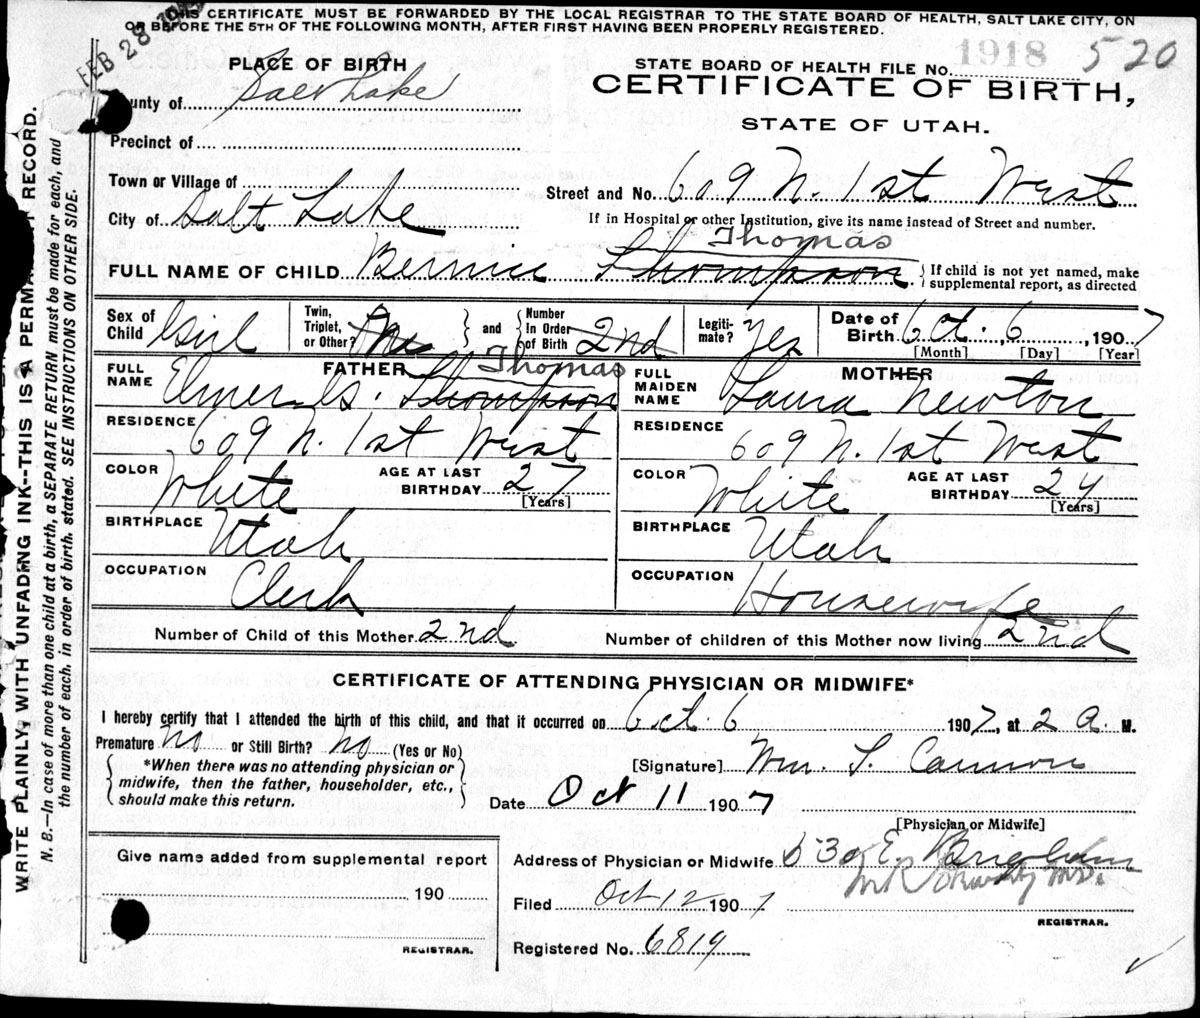 THIS CERTIFICATE MUST BE FORWARDED BY THE LOCAL REGISTRAR TO THE STATE BOARD OF HEALTH, SALT LAKE CITY, ON
OR BEFORE THE 5TH OF THE FOLLOWING MONTH, AFTER FIRST HAVING BEEN PROPERLY REGISTERED.
FEB 28
PLACE OF BIRTH
STATE BOARD OF HEALTH FILE No. 1918 520
CERTIFICATE OF BIRTH,
STATE OF UTAH.
County of Salt Lake
Precinct of
Town or Village of
Street and No. 609 N. 1st West
City of Salt Lake
If in Hospital or other Institution, give its name instead of Street and number.
Thomas
FULL NAME OF CHILD Bernice Thompson
{ If child is not yet named, make
supplemental report, as directed
Sex of Child Girl
Twin, Triplet, or Other? One
and Number In Order of Birth 2nd
Legitimate? Yes
Date of Birth Oct. 6, 1907
[Month] [Day] [Year]
FATHER Thomas
FULL NAME Elmer G. Thompson
RESIDENCE 609 N. 1st West
COLOR White AGE AT LAST BIRTHDAY 27 [Years]
BIRTHPLACE Utah
OCCUPATION Clerk
MOTHER
FULL MAIDEN NAME Laura Newton
RESIDENCE 609 N. 1st West
COLOR White AGE AT LAST BIRTHDAY 24 [Years]
BIRTHPLACE Utah
OCCUPATION Housewife
Number of Child of this Mother 2nd
Number of children of this Mother now living 2nd
CERTIFICATE OF ATTENDING PHYSICIAN OR MIDWIFE*
I hereby certify that I attended the birth of this child, and that it occurred on Oct. 6 1907, at 2 a. M.
Premature No or Still Birth? No (Yes or No)
*When there was no attending physician or
midwife, then the father, householder, etc.,
should make this return.
[Signature] Wm. T. Cannon
Date Oct 11 1907
[Physician or Midwife]
Give name added from supplemental report
190
REGISTRAR.
Address of Physician or Midwife 530 E Brigham
Filed Oct 12 1907
REGISTRAR.
Registered No. 6819
WRITE PLAINLY, WITH UNFADING INK--THIS IS A PERMANENT RECORD.
N. B.—In case of more than one child at a birth, a SEPARATE RETURN must be made for each, and
the number of each, in order of birth, stated. SEE INSTRUCTIONS ON OTHER SIDE.